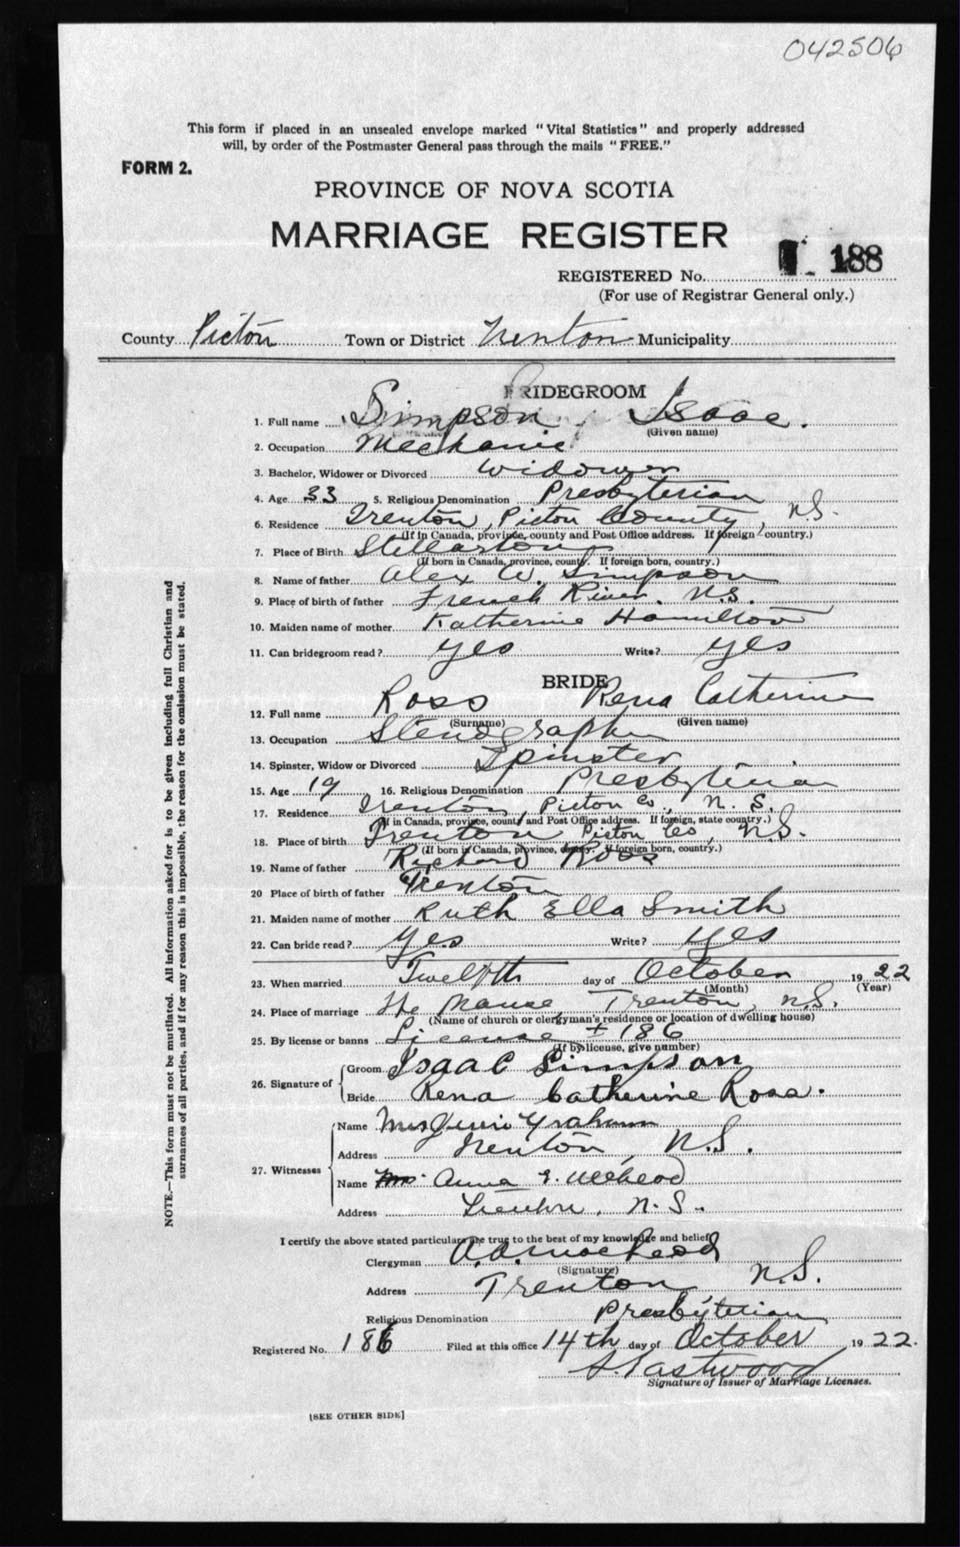 042506
This form if placed in an unsealed envelope marked "Vital Statistics" and properly addressed
will, by order of the Postmaster General pass through the mails "FREE."
FORM 2.
PROVINCE OF NOVA SCOTIA
MARRIAGE REGISTER
REGISTERED No. 188
(For use of Registrar General only.)
County Pictou Town or District Trenton Municipality
BRIDEGROOM
1. Full name Simpson Isaac.
(Given name)
2. Occupation Mechanic
3. Bachelor, Widower or Divorced Widower
4. Age 33 5. Religious Denomination Presbyterian
6. Residence Trenton, Pictou County, N.S.
(If in Canada, province, county and Post Office address. If foreign country.)
7. Place of Birth Stellarton
(If born in Canada, province, county. If foreign born, country.)
8. Name of father Alex W. Simpson
9. Place of birth of father French River. N.S.
10. Maiden name of mother Katherine Hamilton
11. Can bridegroom read? yes Write? yes
BRIDE
12. Full name Ross Rena Catherine
(Surname) (Given name)
13. Occupation Stenographer
14. Spinster, Widow or Divorced Spinster
15. Age 19 16. Religious Denomination Presbyterian
17. Residence Trenton, Pictou Co, N.S.
(If in Canada, province, county and Post Office address. If foreign, state country.)
18. Place of birth Trenton Pictou Co, N.S.
(If born in Canada, province, county. If foreign born, country.)
19. Name of father Richard Ross
20 Place of birth of father Trenton
21. Maiden name of mother Ruth Ella Smith
22. Can bride read? Yes Write? yes
23. When married Twelfth day of October 1922
(Month) (Year)
24. Place of marriage The Manse, Trenton, N.S.
(Name of church or clergyman's residence or location of dwelling house)
25. By license or banns License 186
(If by license, give number)
26. Signature of Groom Isaac Simpson
Bride Rena Catherine Ross.
27. Witnesses Name Mrs Graham
Address Trenton, N.S.
Name Anna
Address Trenton, N.S.
I certify the above stated particulars are true to the best of my knowledge and belief
Clergyman A.D. MacLeod
(Signature)
Address Trenton N.S.
Religious Denomination Presbyterian
Registered No. 186 Filed at this office 14th day of October 1922.
Eastwood
Signature of Issuer of Marriage Licenses.
[SEE OTHER SIDE]
NOTE.—This form must not be mutilated. All information asked for is to be given including full Christian and
surnames of all parties, and if for any reason this is impossible, the reason for the omission must be stated.